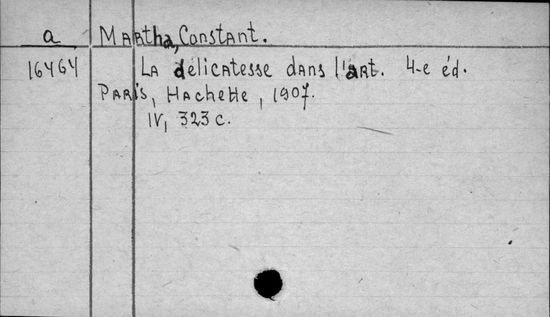 a Martha, Constant.
16464 La délicatesse dans l'art. 4-e éd.
Paris, Hachette, 1907.
IV, 323 c.